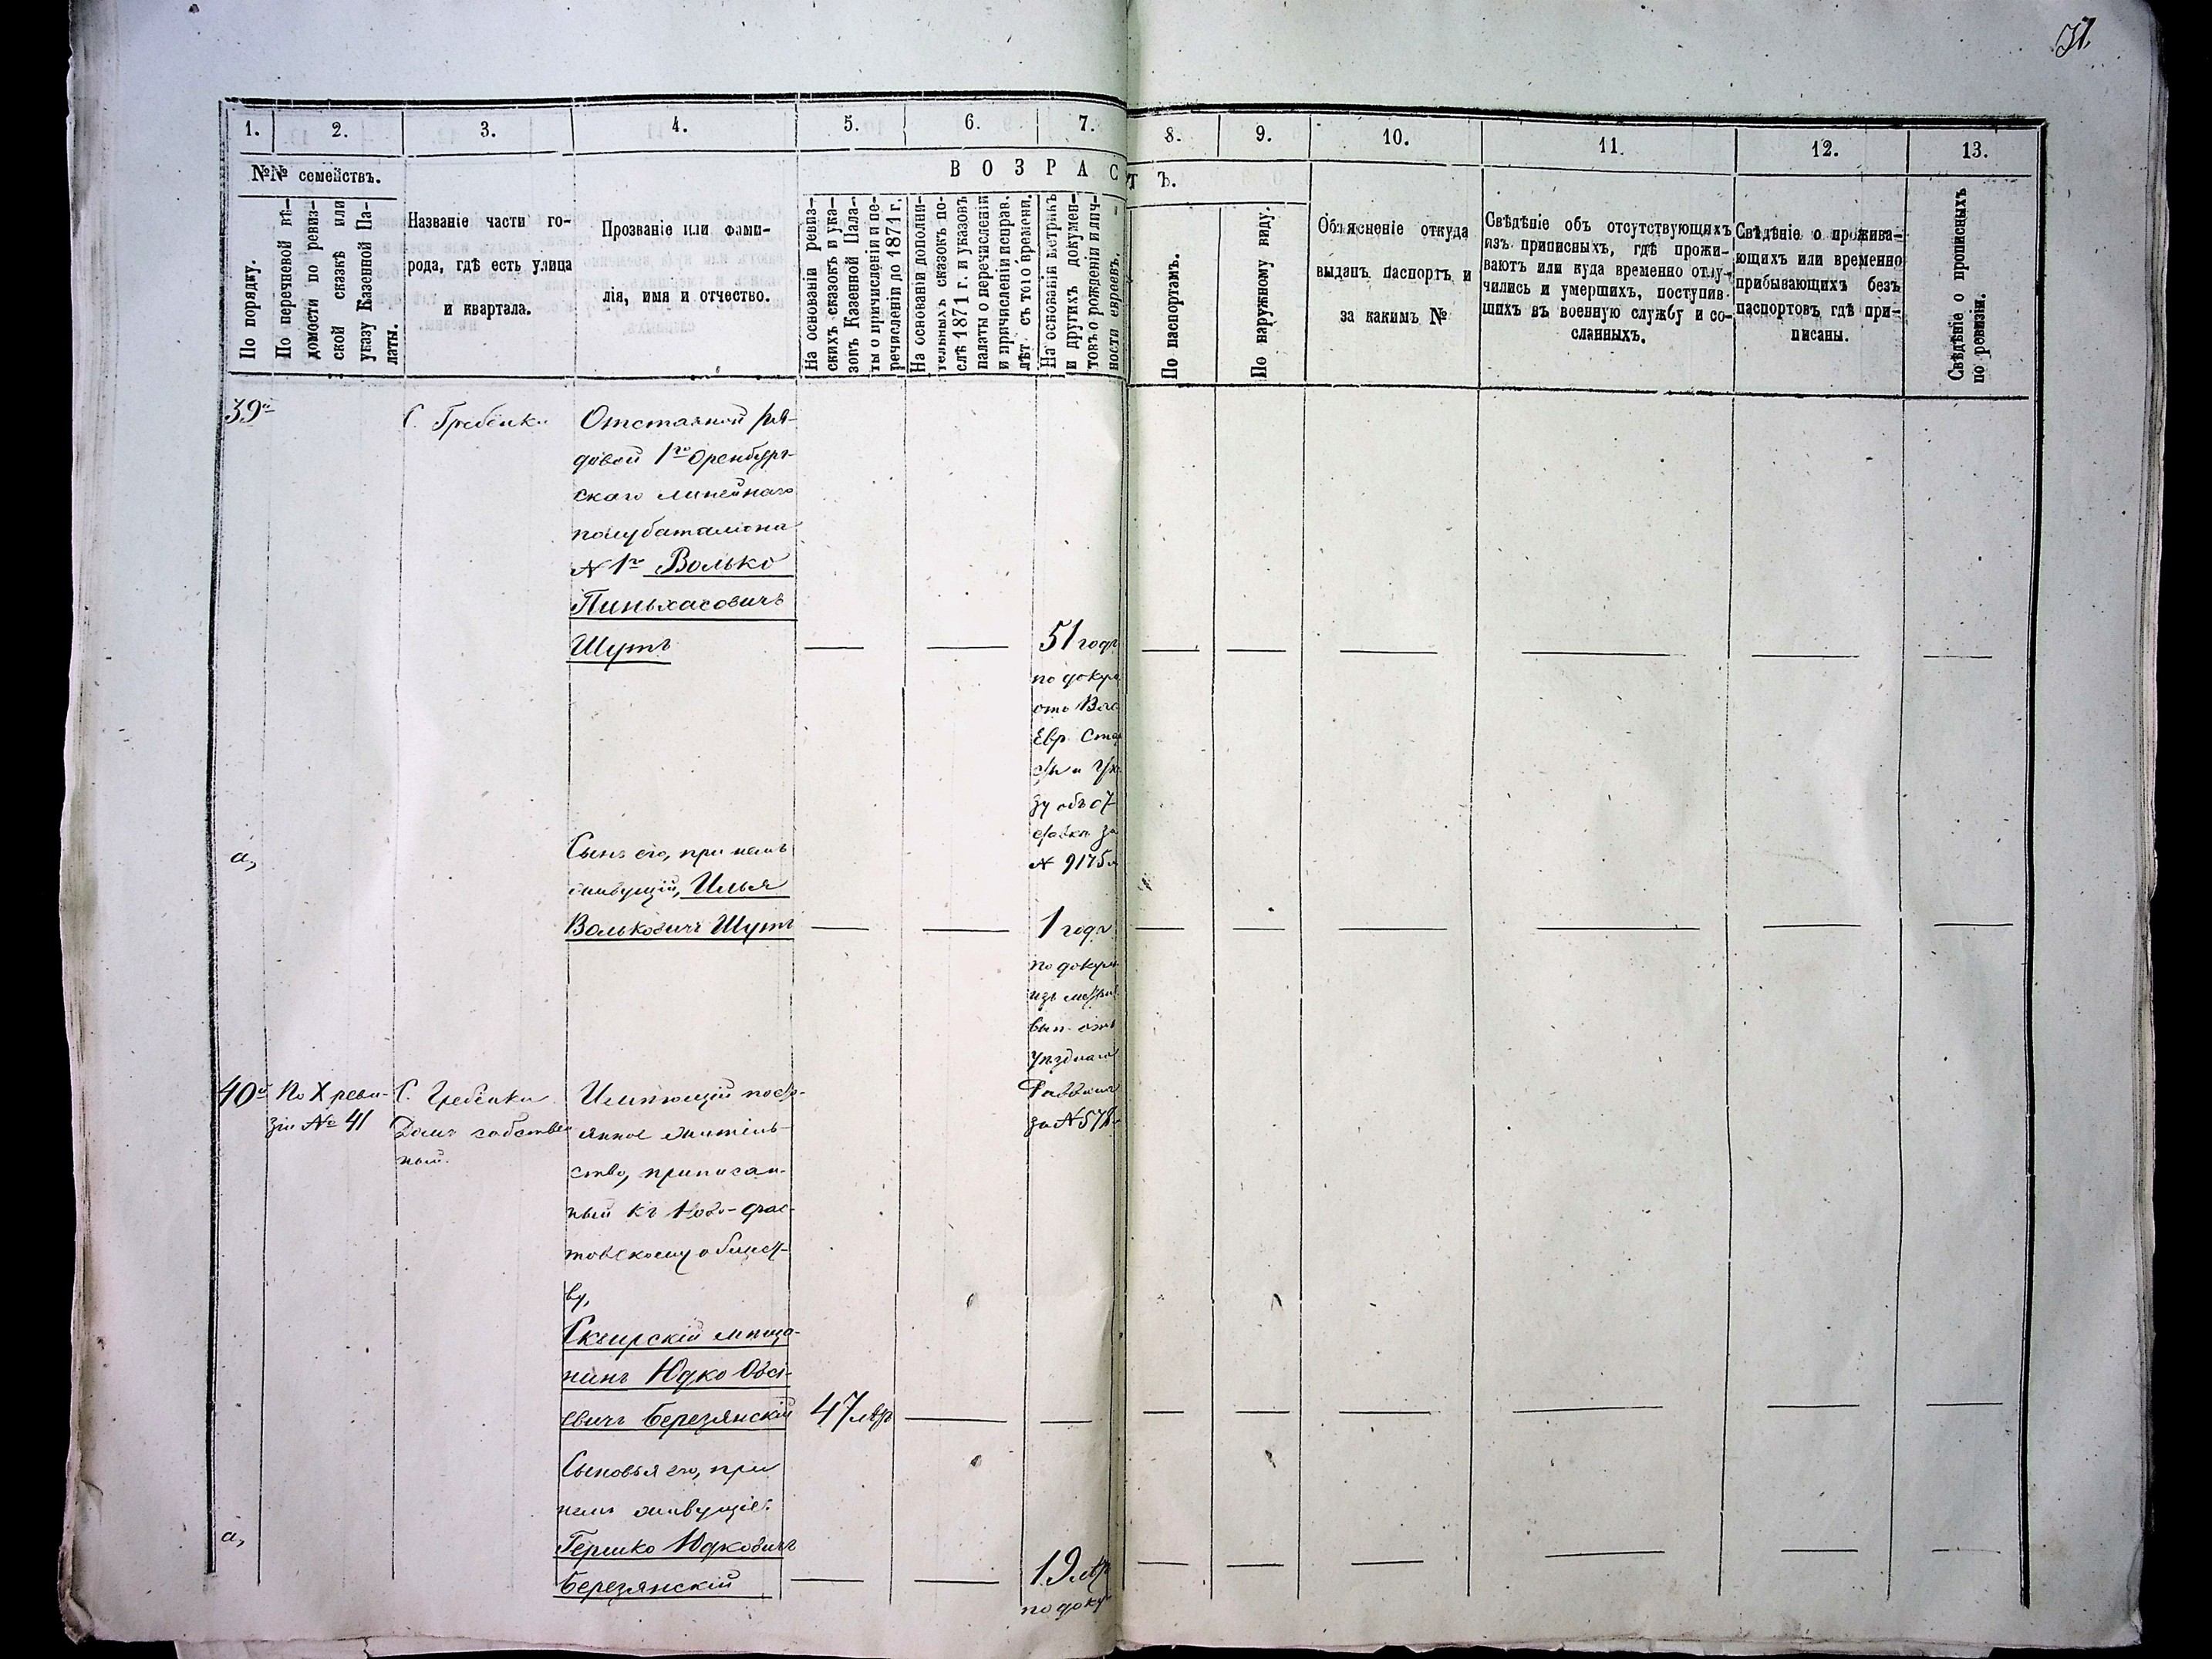 31.
1.
2.
3.
4.
5.
6.
7.
8.
9.
10.
11.
12.
13.
№№ семействъ.
ВОЗРАСТЪ.
По порядку.
По перечневой вѣ-
домости по ревиз-
ской сказкѣ или
указу Казенной Па-
латы.
Названіе части го-
рода, гдѣ есть улица
и квартала.
Прозваніе или фами-
лія, имя и отчество.
На основаніи ревиз-
скихъ сказокъ и ука-
зовъ Казенной Пала-
ты о причисленіи и пе-
речисленіи до 1871 г.
На основаніи дополни-
тельныхъ сказокъ по-
слѣ 1871 г. и указовъ
палаты о перечисленіи
и причисленіи исправ.
лѣт. съ того времени.
На основаніи метрикъ
и другихъ докумен-
товъ о рожденіи и лич-
ности евреевъ.
По паспортамъ.
По наружному виду.
Объясненіе откуда
выданъ паспортъ и
за какимъ №
Свѣдѣніе объ отсутствующихъ
изъ приписныхъ, гдѣ прожи-
ваютъ или куда временно отлу-
чились и умершихъ, поступив-
шихъ въ военную службу и со-
сланныхъ.
Свѣдѣніе о прожива-
ющихъ или временно
прибывающихъ безъ
паспортовъ гдѣ при-
писаны.
Свѣдѣніе о прописныхъ
по ревизіи.
39й
С. Гребенки
Отставной ря-
довой 1го Оренбург-
скаго линейнаго
полубаталіона
№ 1го Волько
Пиньхасовичъ
Шутъ
51 годъ
по докум
отъ
Евр. Ста
ука
зу объ от
ставкѣ за
№ 9175
а,
Сынъ его, при немъ
живущій, Илья
Вольковичъ Шутъ
1 годъ
по докум
изъ
вып. отъ
уѣзднаго
Раввина
за № 578
40й
По X реви-
зіи № 41
С. Гребенки
Домъ собствен
ный.
Имѣющій посто-
янное житель-
ство, приписан-
ный къ Ново-Фас-
товскому общест-
ву,
Сквирскій мѣща-
нинъ Юдко Овсі-
евичъ Березянскій
47 лѣтъ
Сыновья его, при
немъ живущіе:
а,
Гершко Юдковичъ
Березянскій
19 лѣтъ
по доку